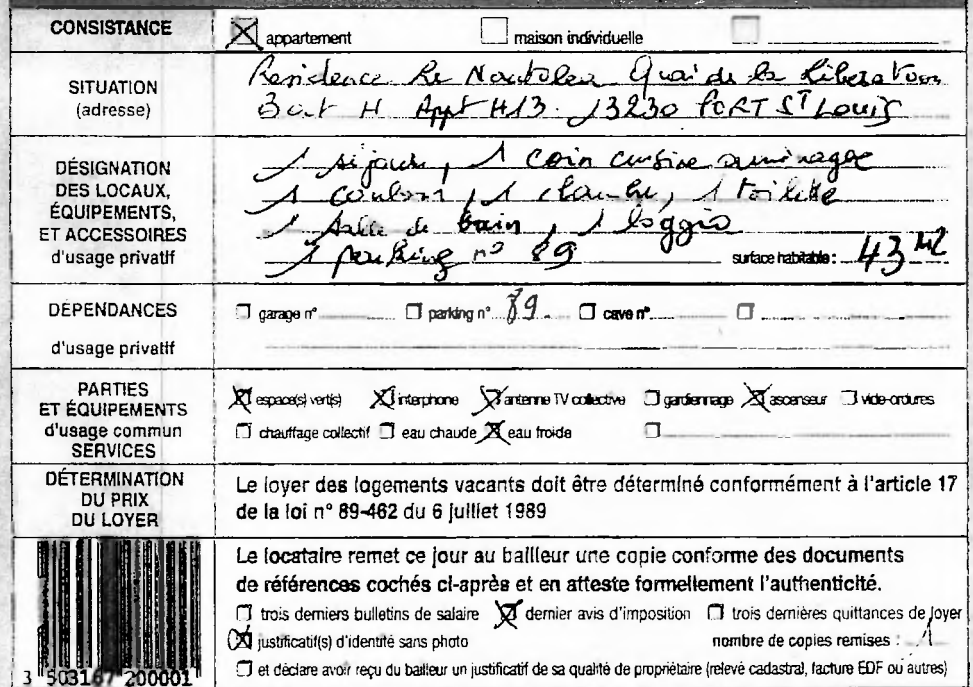 CONSISTANCE
appartement maison individuelle
SITUATION
(adresse)
Residence Le Nautilea Quai de la Liberation
Bat H Appt H13. 13230 PORT ST LOUIS
DÉSIGNATION
DES LOCAUX,
ÉQUIPEMENTS,
ET ACCESSOIRES
d'usage privatif
1 séjour, 1 coin cuisine aménagée
1 couloir, 1 chambre, 1 toilette
1 salle de bain, 1 loggia
1 parking n° 89 surface habitable : 43 M2
DÉPENDANCES
d'usage privatif
garage n° parking n° 89 cave n°
PARTIES
ET ÉQUIPEMENTS
d'usage commun
SERVICES
espace(s) vert(s) interphone antenne TV collective gardiennage ascenseur vide-ordures
chauffage collectif eau chaude eau froide
DÉTERMINATION
DU PRIX
DU LOYER
Le loyer des logements vacants doit être déterminé conformément à l'article 17
de la loi n° 89-462 du 6 juillet 1989
Le locataire remet ce jour au bailleur une copie conforme des documents
de références cochés ci-après et en atteste formellement l'authenticité.
trois derniers bulletins de salaire dernier avis d'imposition trois dernières quittances de loyer
justificatif(s) d'identité sans photo nombre de copies remises : 1
et déclare avoir reçu du bailleur un justificatif de sa qualité de propriétaire (relevé cadastral, facture EDF ou autres)
3 503167 200001